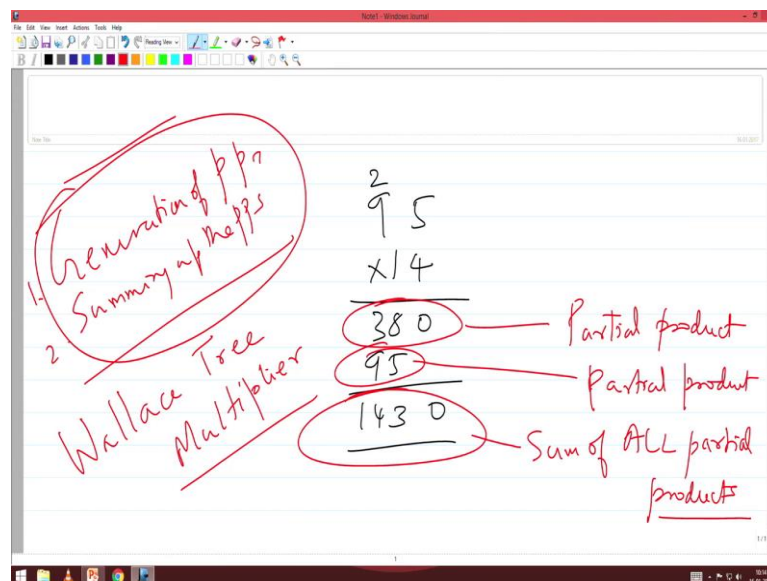 Note1 - Windows Journal
File Edit View Insert Actions Tools Help
Reading View
B I
Note Title
1. Generation of PPs
2 Summing up the PPs
Wallace Tree
Multiplier
2
95
×14
380
95
1430
Partial product
Partial product
Sum of ALL partial
products
1/1
1
10:14